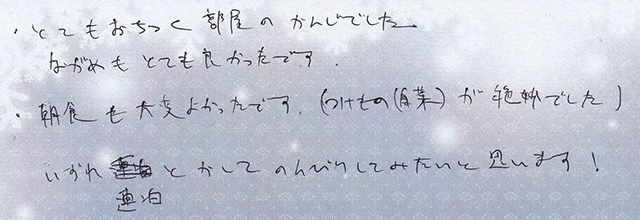 ・とてもおちつく部屋のかんじでした
ながめもとても良かったです.
・朝食も大変よかったです.(つけもの(白菜)が絶妙でした)
いずれ とかしてのんびりしてみたいと思います!
連泊